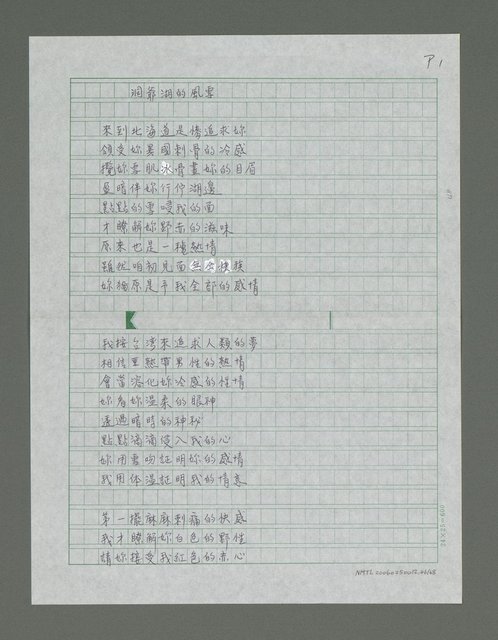 P1
洞爺湖的風雪
來到北海道是傳追求妳
領受妳異國刺骨的冷感
攬妳雪肌冰骨畫妳的目眉
暗伴妳行佇湖邊
點點的雪浸我的面
才瞭解妳野赤的滋味
原來也是一種熱情
雖然咱初見面
妳猶原是乎我全部的感情
我按台灣來追求人類的夢
相信熱帶男性的熱情
會當溶化妳冷感的性情
妳看妳溫柔的眼神
透過暗時的神秘
點點滴滴侵入我的心
妳用雪吻証明妳的感情
我用体溫証明我的情意
第一擺麻麻刺痛的快感
我才瞭解妳白色的野性
請妳接受我紅色的赤心
24×25=600